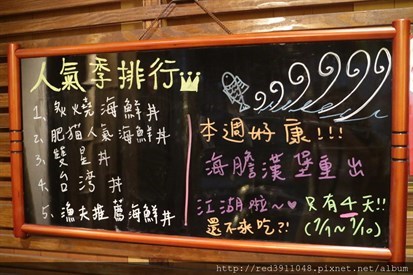 人氣季排行
1、炙燒海鮮丼
2、肥猫人氣海鮮丼
3、雙星丼
4、台湾丼
5、漁夫推薦海鮮丼
本週好康!!!
海膽漢堡重出
江湖啦~♥只有4天!!
還不來吃?!(7/7~7/10)
http://red3911048.pixnet.net/album